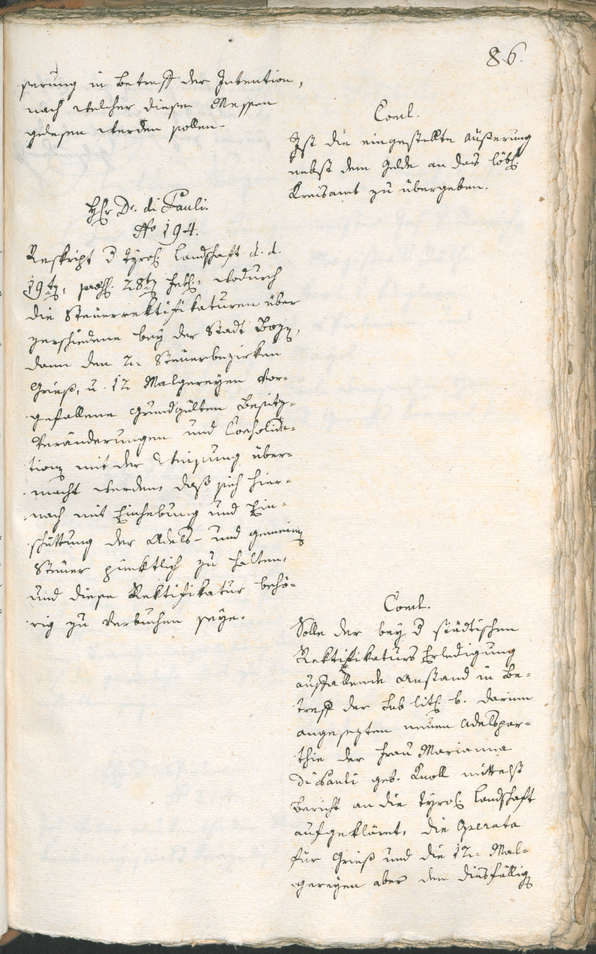 86.
serung in Betreff der Intention,
nach welcher diese Messen
gelesen werden sollen.
Concl.
Ist die eingestellte Äußerung
nebst dem Gelde an das löbl.
Kreisamt zu übergeben.
Hr. Dr. di Pauli.
No 194.
Reskript d. tyrol. Landschaft d. d.
19ten, praes. 28ten Febr., wodurch
die Steuerrektifikaturen über
verschiedene bey der Stadt Bozen,
dann den 2. Steuerbezirken
Gries, u. 12 Malgereyen vor-
gefallene Grundgülten Besitz-
Veränderungen und Consolida-
tionen mit der Weisung über-
macht werden, daß sich hier-
nach mit Einhebung und Ein-
schüttung der Adels- und gemeinen
Steuer pünktlich zu halten,
und diese Rektifikatur behö-
rig zu verbuchen seye.
Concl.
Solle der bey d. städtischen
Rektifikaturs Erledigung
auffallende Anstand in Be-
treff der sub lit. b. darinn
angesezten neuen Adelspar-
thie der Frau Marianna
di Pauli geb. Knoll mittelst
Bericht an die tyrol. Landschaft
aufgeklärt, die Operata
für Gries und die 12. Mal-
gereyen aber den diesfällig